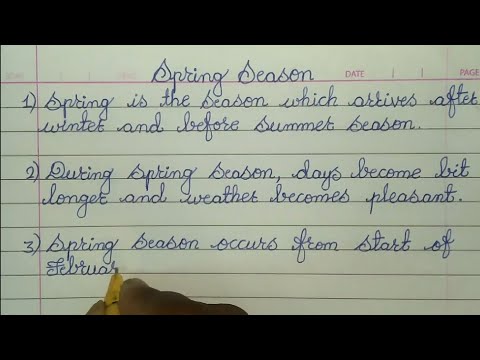 Spring Season
DATE
PAGE
1) Spring is the season which arrives after
winter and before summer season.
2) During spring season, days become bit
longer and weather becomes pleasant.
3) Spring season occurs from start of
Februar